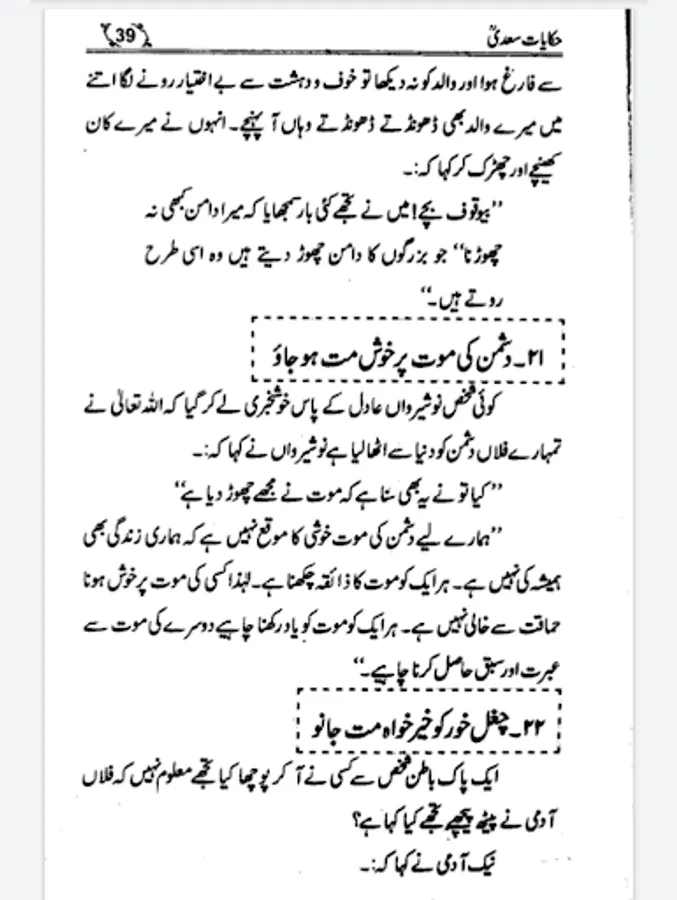 حکایات سعدیؒ 39
سے فارغ ہوا اور والد کو نہ دیکھا تو خوف و دہشت سے بے اختیار رونے لگا اتنے
میں میرے والد بھی ڈھونڈتے ڈھونڈتے وہاں آ پہنچے۔ انہوں نے میرے کان
کھینچے اور جھڑک کر کہا کہ:۔
’’بیوقوف بچے! میں نے تجھے کئی بار سمجھایا کہ میرا دامن کبھی نہ
چھوڑنا‘‘ جو بزرگوں کا دامن چھوڑ دیتے ہیں وہ اسی طرح
روتے ہیں۔‘‘
۲۱۔ دشمن کی موت پر خوش مت ہو جاؤ
کوئی شخص نوشیرواں عادل کے پاس خوشخبری لے کر گیا کہ اللہ تعالیٰ نے
تمہارے فلاں دشمن کو دنیا سے اٹھا لیا ہے نوشیرواں نے کہا کہ:۔
’’کیا تو نے یہ بھی سنا ہے کہ موت نے مجھے چھوڑ دیا ہے‘‘
’’ہمارے لیے دشمن کی موت خوشی کا موقع نہیں ہے کہ ہماری زندگی بھی
ہمیشہ کی نہیں ہے۔ ہر ایک کو موت کا ذائقہ چکھنا ہے۔ لہٰذا کسی کی موت پر خوش ہونا
حماقت سے خالی نہیں ہے۔ ہر ایک کو موت کو یاد رکھنا چاہیے دوسرے کی موت سے
عبرت اور سبق حاصل کرنا چاہیے۔‘‘
۲۲۔ چغل خور کو خیر خواہ مت جانو
ایک پاک باطن شخص سے کسی نے آ کر پوچھا کیا تجھے معلوم نہیں کہ فلاں
آدمی نے پیٹھ پیچھے تجھے کیا کہا ہے؟
نیک آدمی نے کہا کہ:۔